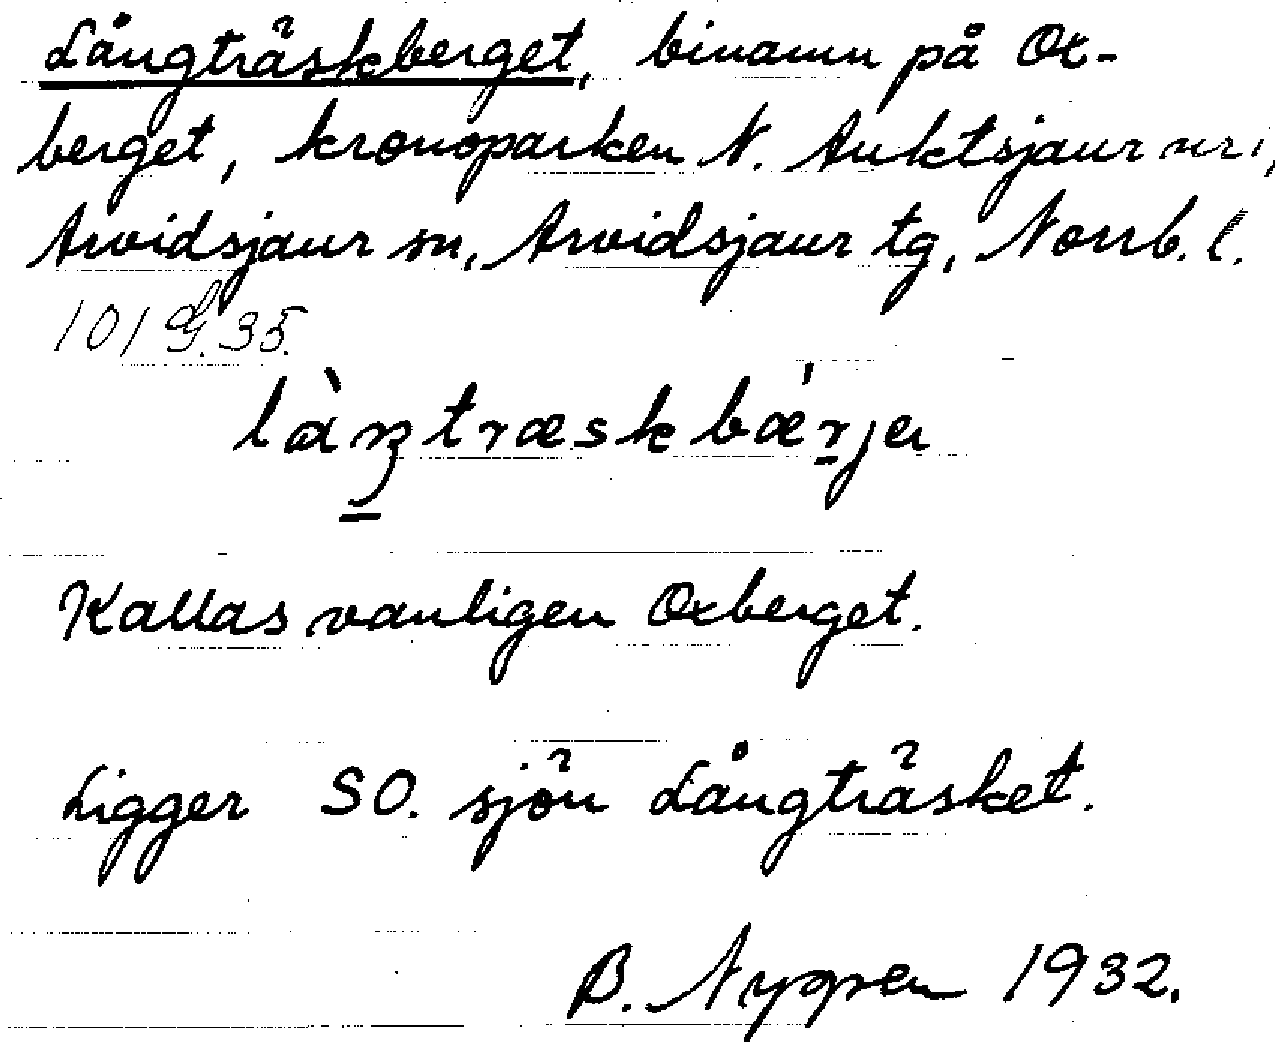 Långträskberget, binamn på Ox-
berget, kronoparken N. Auktsjaur nr 1,
Arvidsjaur sn, Arvidsjaur tg, Norrb. l.
101 G. 35.
làŋtræskbǽrja
Kallas vanligen Oxberget.
Ligger SO. sjön Långträsket.
B. Nygren 1932.